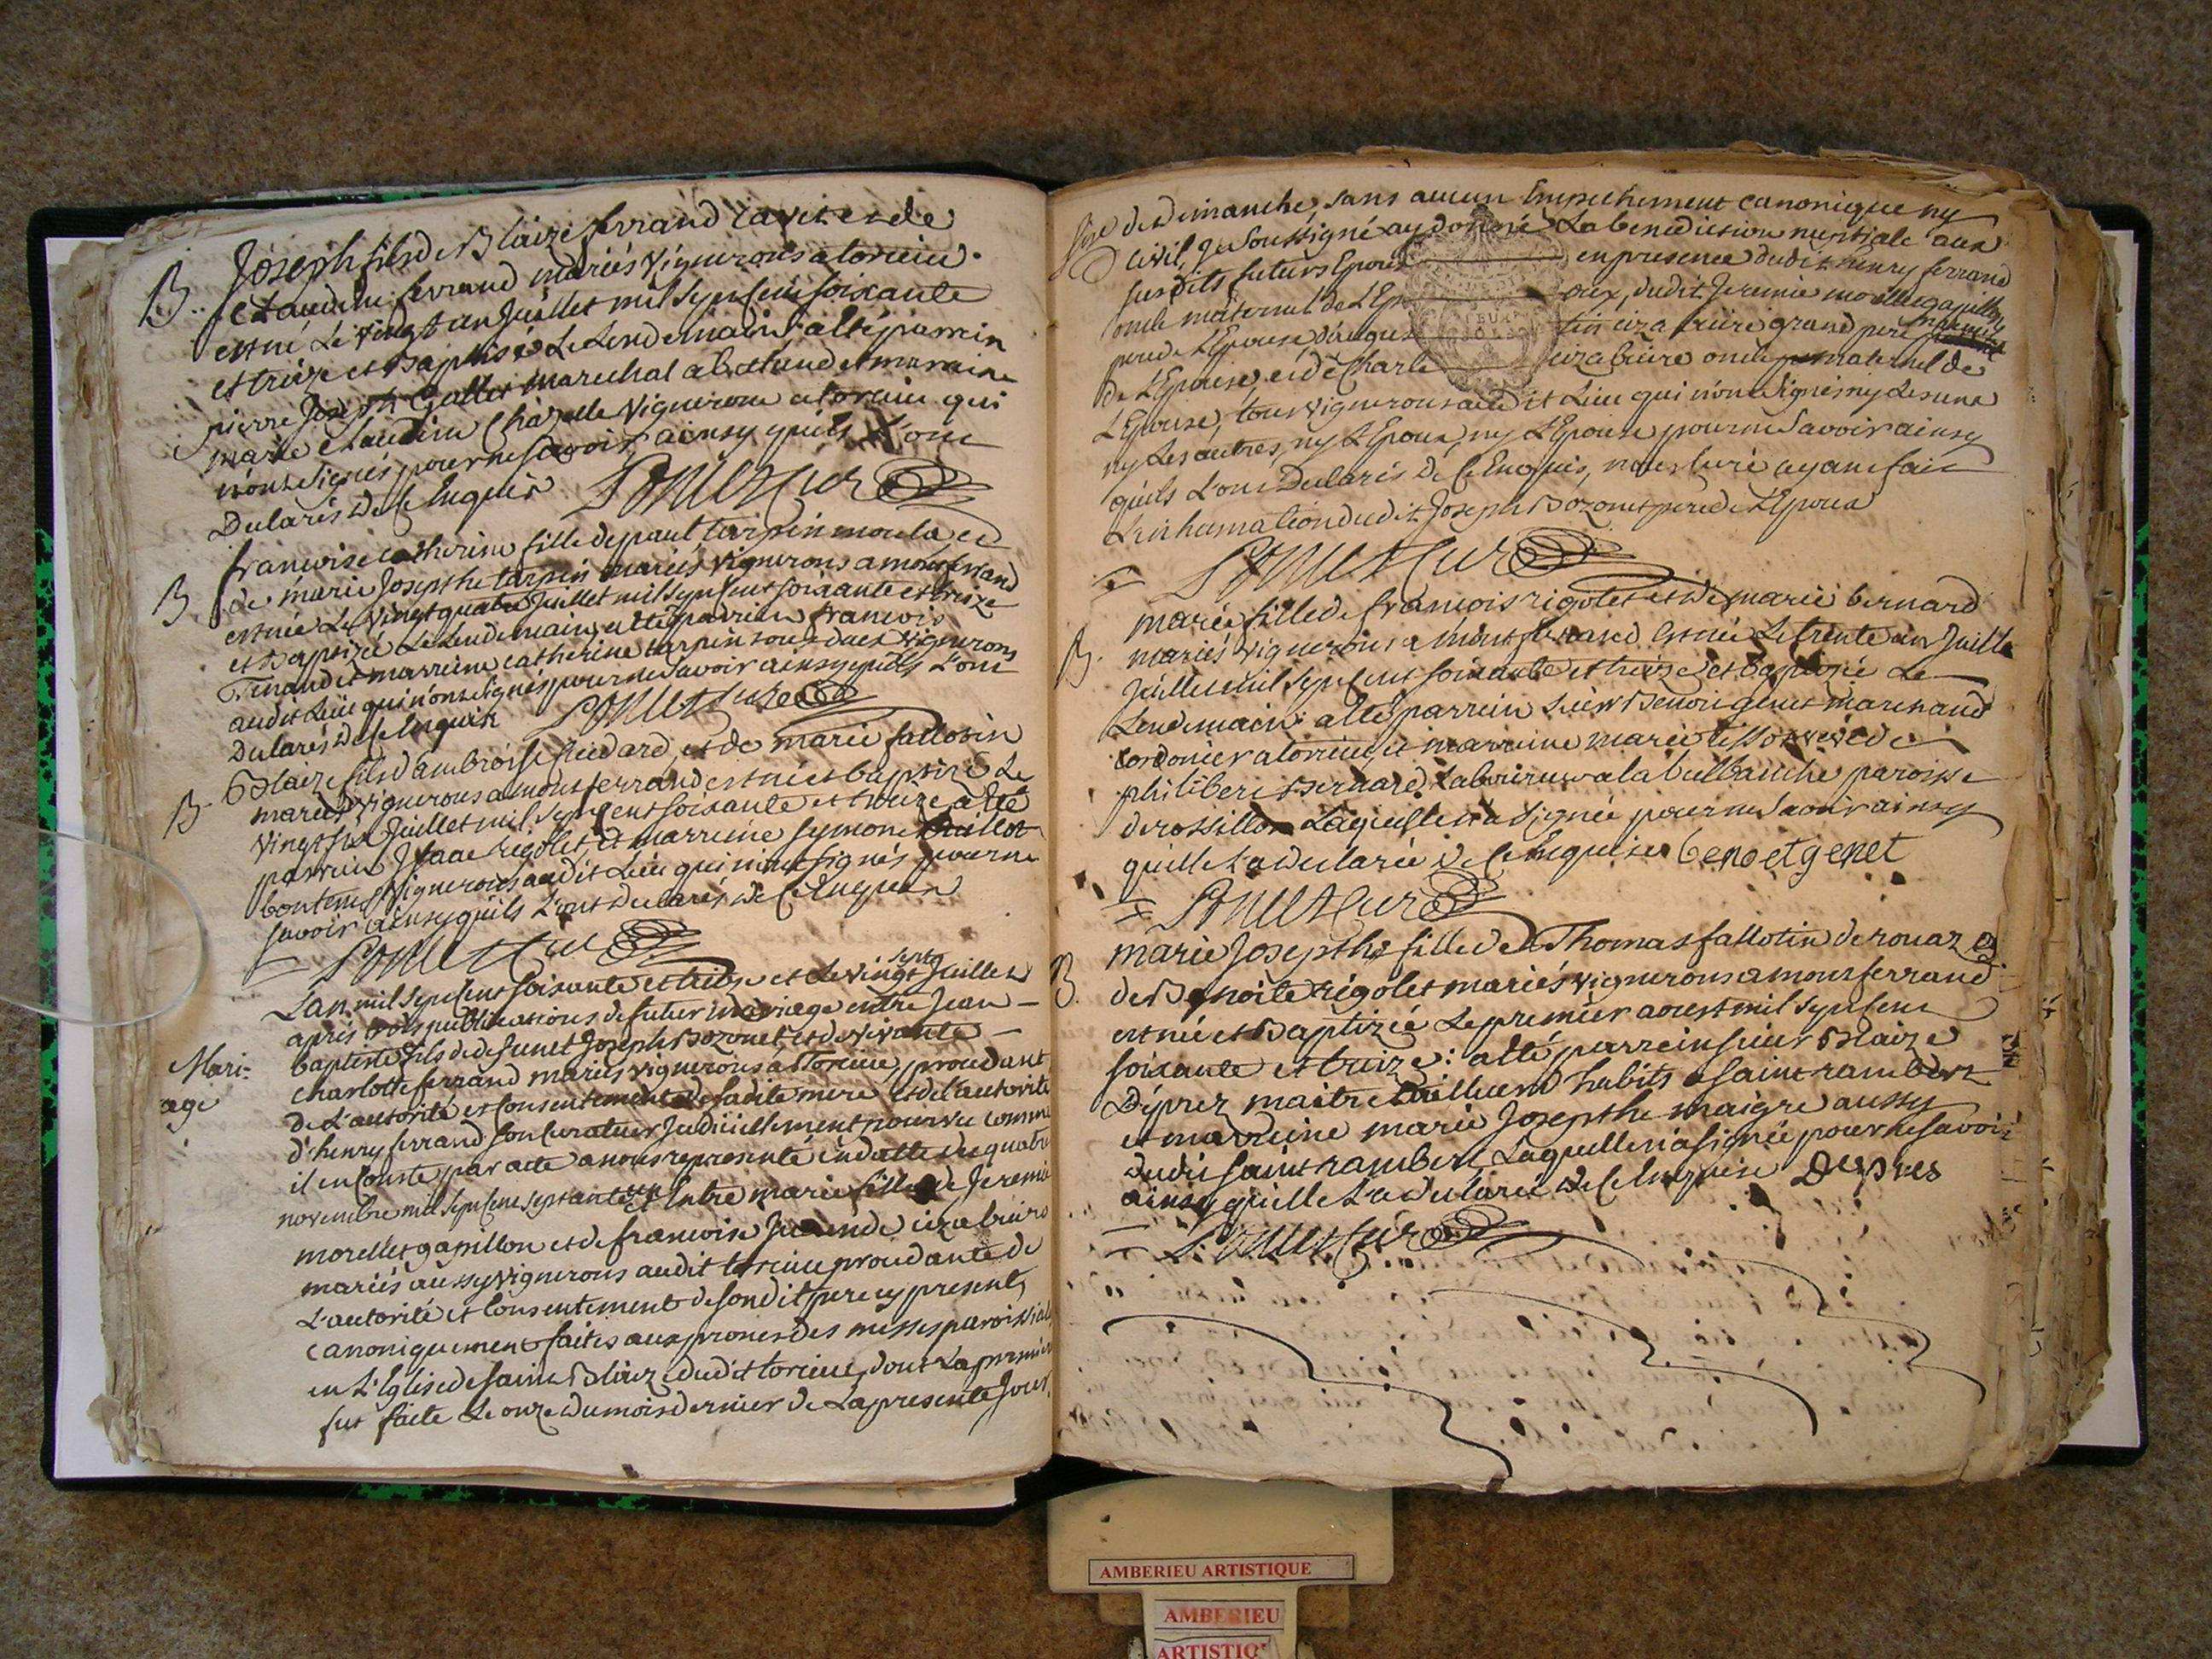 B. Joseph fils de Blaize ferrand ravit et de
Claudine ferrand mariés vignerons a torcieu
est né Le vingt un Juillet mil sept cent soixante
et treize et Baptisé Le Lendemain: a été parrein
pierre Joseph Gollet marechal a et marraine
marie Claudine Chazelle vigneronne a torcieu qui
n'ont signés pour ne savoir ainsy qu'ils L'ont
Declarés de Ce Enquis
curé
B francoise catherine fille de paul tarpin moula et
de marie Josephte tarpin mariés vignerons a montferrand
est née Le vingt quatre Juillet mil sept cent soixante et treize
et Baptizée Le Lendemain, a été parrein francois
Tenand et marreine catherine tarpin tous deux vignerons
audit Lieu qui n'ont signés pour ne savoir ainsy qu'ils L'ont
Declarés de Ce Enquis
curé
B. Blaize fils d'ambroise et de marie fallotin
mariés vignerons a montferrand est né et baptizé Le
vingt six Juillet mil sept cent soixante et treize a été
parrein Isaac rigolet et marreine symone
bontems vignerons audit Lieu qui n'ont signés pour ne
savoir ainsy qu'ils L'ont Declarés de Ce Enquis
curé
septe
L'an mil sept cent soixante et treize et Le vingt Juillet
après trois publications de futur mariage entre Jean
Mari- baptiste fils de defunt Joseph Bozonet et de vivante
age charlotte ferrand mariés vignerons à Torcieu, procedant
de L'autorité et Consentement de sadite mere et de L'autorité
d'henry ferrand son Curateur Judiciellement pourvu comme
il en Conste par acte a nous representé en datte du quatre
novembre mil sept cent septante un Entre marie fille de Jeremie
morellet gapillon et de francoise Jeande cizabuire
mariés aussy vignerons audit torcieu procedante de
L'autorité et Consentement de son dit pere cy present,
canoniquement faites aux prones des messes paroissiales
en L'Eglise de saint Blaize dudit torcieu, dont La premiere
fut faite Le onze du mois dernier de La presente Jour
de dimanche, sans aucun Empechement canonique ny
Civil, Je Soussigné ay donné La benediction nuptiale aux
susdits futurs Epoux en presence dudit henry ferrand
oncle maternel de L'Ep oux, dudit Jeremie morellet gapillon
pere de L'Epouse d'augus tin cizabuire grand pere maternel
de L'Epouse, et de Charle cizabuire oncle maternel de
L'Epouse, tous vignerons audit Lieu qui n'ont signés ny Les uns
ny Les autres, ny L'Epoux, ny L'Epouse pour ne Savoir ainsy
qu'ils L'ont Declarés de Ce Enquis, nous Curé ayant fait
L'inhumation dudit Joseph Bozonet pere de L'Epoux
curé
B. marie fille de francois rigolet et de marie bernard
mariés vignerons a montferrand est née Le trente un Juille
Juillet mil sept cent soixante et treize et baptizée Le
Lendemain: a été parrein sieur Benoit genet marchand
cordonier a torcieu, et marreine marie tissot veuve de
philibert Bernard, Laboureur a la bullanche paroisse
de rossillon Laquelle n'a signée pour ne Savoir ainsy
quelle L'a declarée de Ce Enquise benoetgenet
curé
B. marie Josephte fille de Thomas fallotin de rouaz et
de Benoite rigolet mariés vignerons a montferrand
est née et Baptizée Le premier aoust mil sept cent
soixante et treize: a été parrein sieur Blaize
Déprez maitre tailleur d'habits a saint rambert
et marreine marie Josephte maigre aussy
dudit saint rambert, Laquelle n'a signée pour ne savoir
ainsy quelle L'a declaré de Ce Enquise Depres
curé
AMBERIEU ARTISTIQUE
AMBERIEU
ARTISTIQ